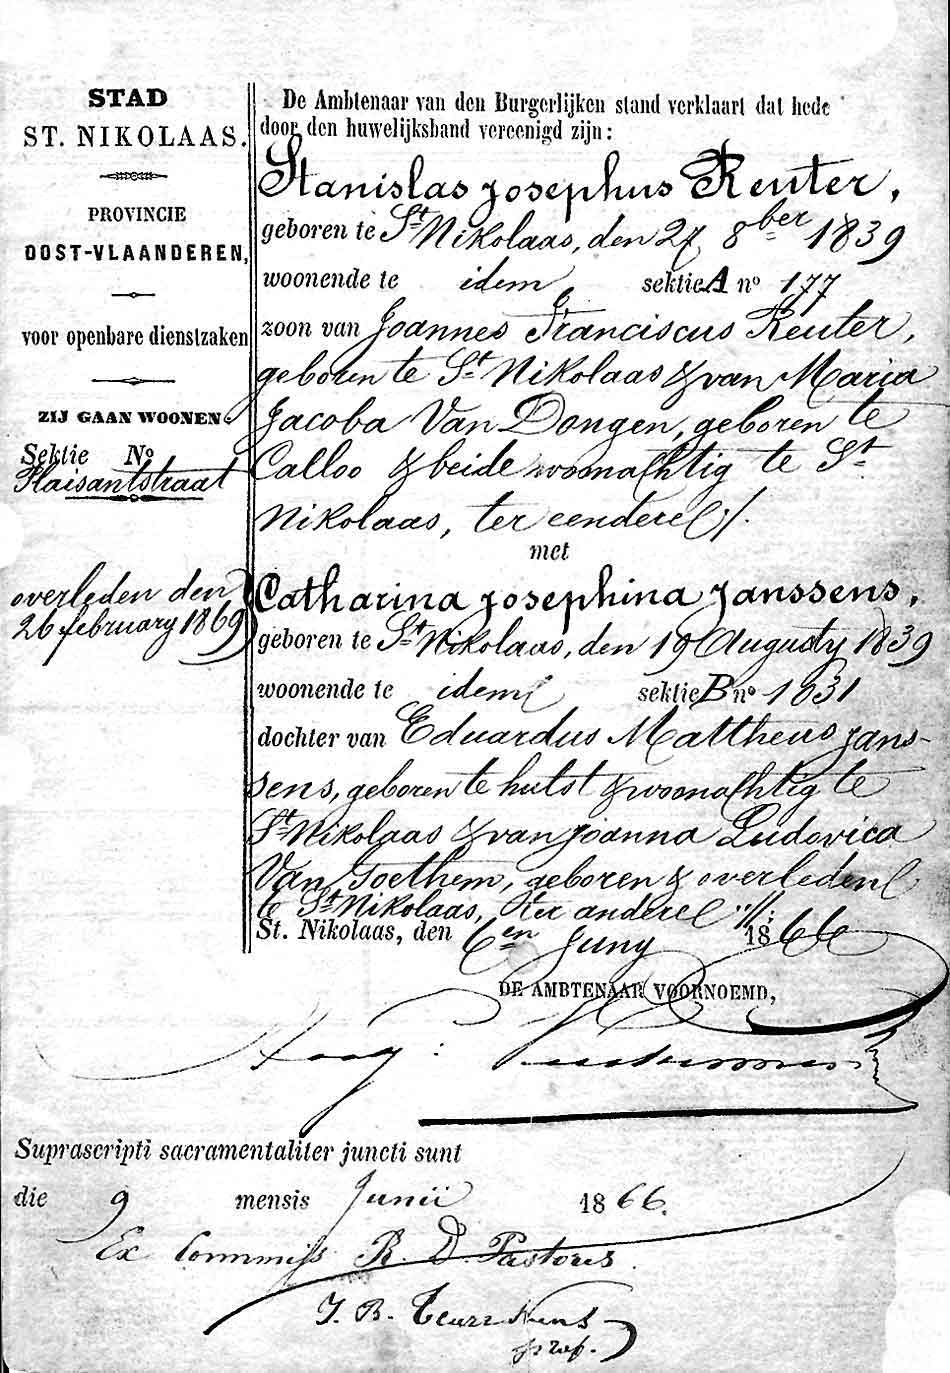 STAD
ST. NIKOLAAS.
PROVINCIE
OOST-VLAANDEREN,
voor openbare dienstzaken
ZIJ GAAN WOONEN:
Sektie No
Plaisantstraat
overleden den
26 february 1869
De Ambtenaar van den Burgerlijken stand verklaart dat hede
door den huwelijksband vereenigd zijn:
Stanislas Josephus Reuter,
geboren te St Nikolaas, den 27 8ber 1839
woonende te idem sektie A no 177
zoon van Joannes Franciscus Reuter,
geboren te St Nikolaas & van Maria
Jacoba Van Dongen, geboren te
Calloo & beide woonachtig te St
Nikolaas, ter eendere /.
met
Catharina Josephina Janssens,
geboren te St Nikolaas, den 19 Augusty 1839
woonende te idem sektie B no 1831
dochter van Eduardus Mattheus Jans-
sens, geboren te hulst & woonachtig te
St Nikolaas & van Joanna Ludovica
Van Goethem, geboren & overleden
te St Nikolaas, ter andere ./.
St. Nikolaas, den 6en Juny 1866
DE AMBTENAAR VOORNOEMD,
Suprascripti sacramentaliter juncti sunt
die 9 mensis Junii 1866.
Ex Commiss R. D. Pastoris.
J. B.